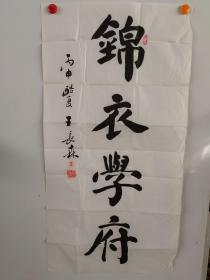 錦衣學府
丙申 王長森